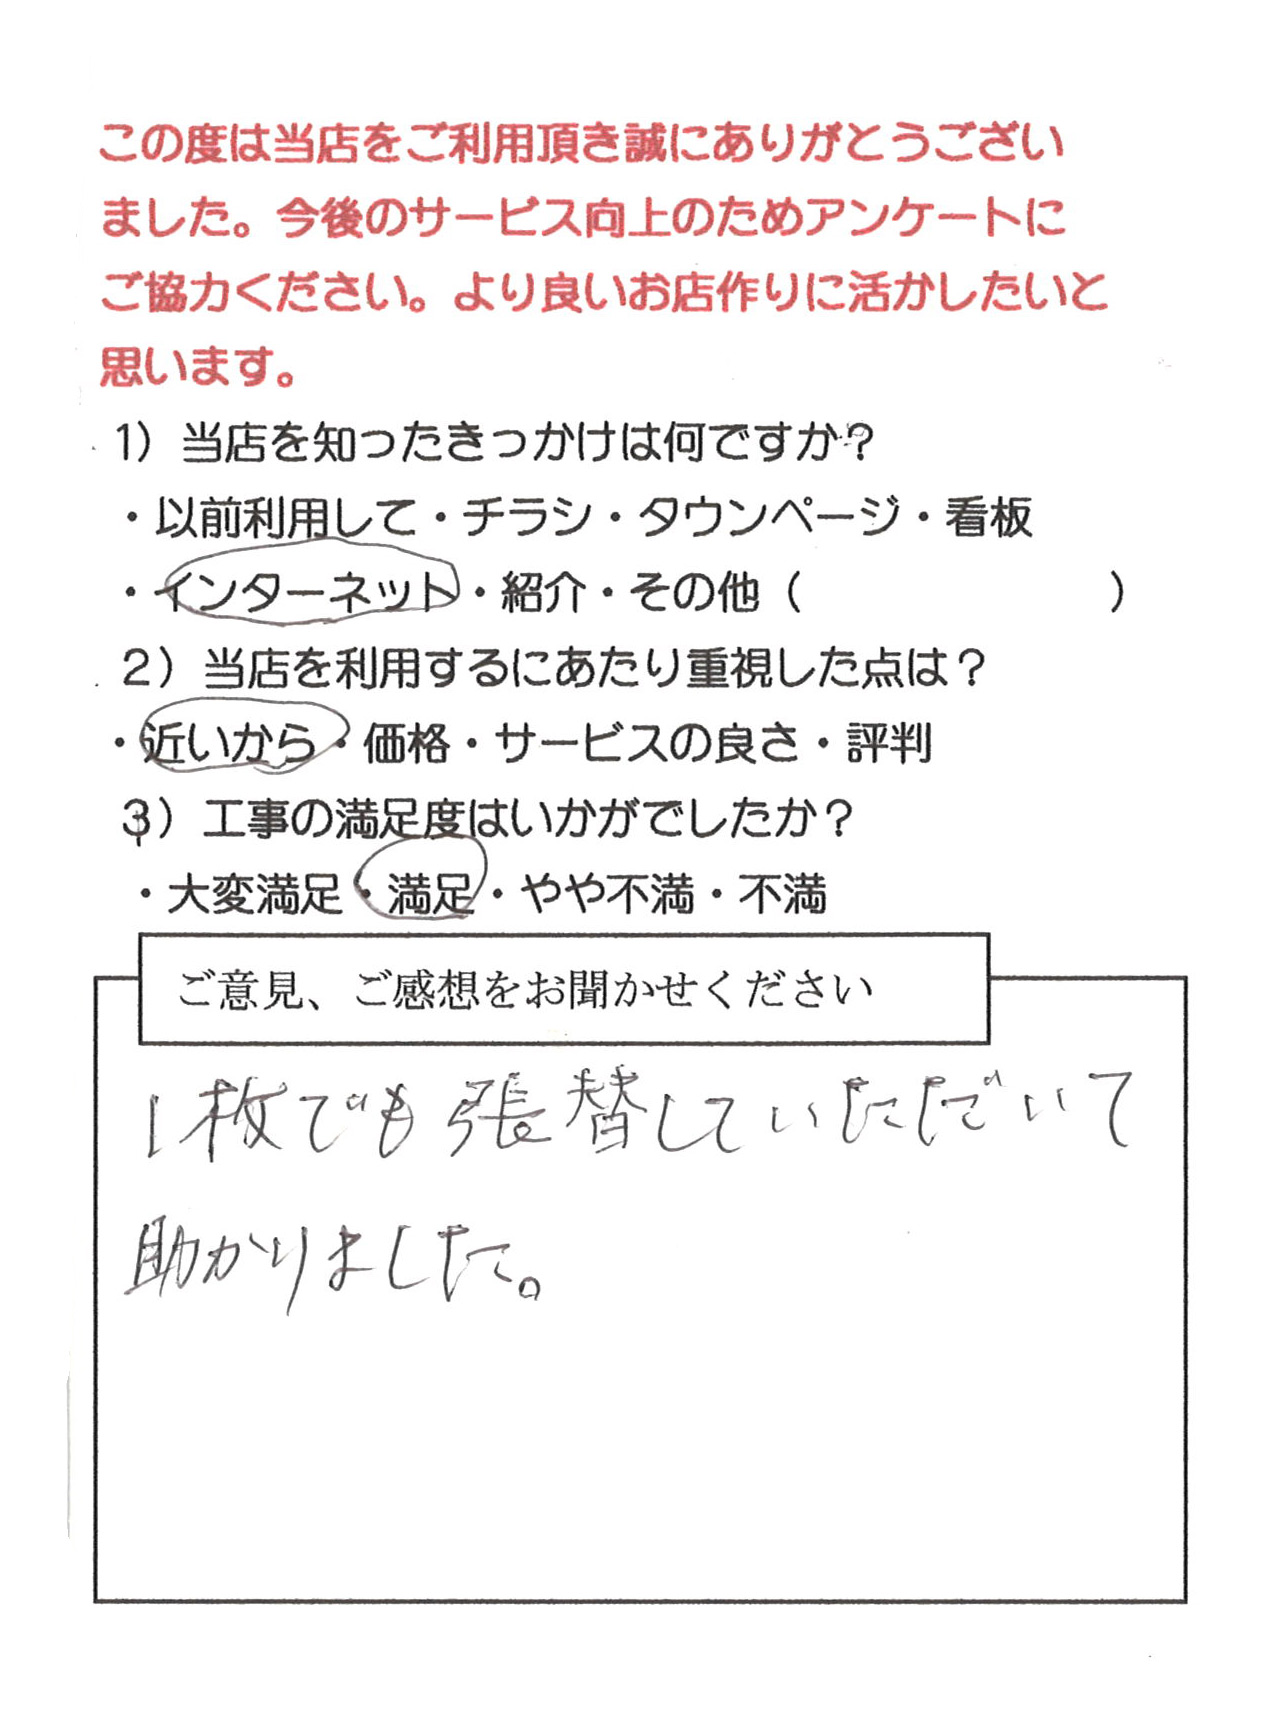 この度は当店をご利用頂き誠にありがとうござい
ました。今後のサービス向上のためアンケートに
ご協力ください。より良いお店作りに活かしたいと
思います。
1）当店を知ったきっかけは何ですか？
・以前利用して・チラシ・タウンページ・看板
・インターネット・紹介・その他（　　　　　　　）
2）当店を利用するにあたり重視した点は？
・近いから・価格・サービスの良さ・評判
3）工事の満足度はいかがでしたか？
・大変満足・満足・やや不満・不満
ご意見、ご感想をお聞かせください
1枚でも張替していただいて
助かりました。